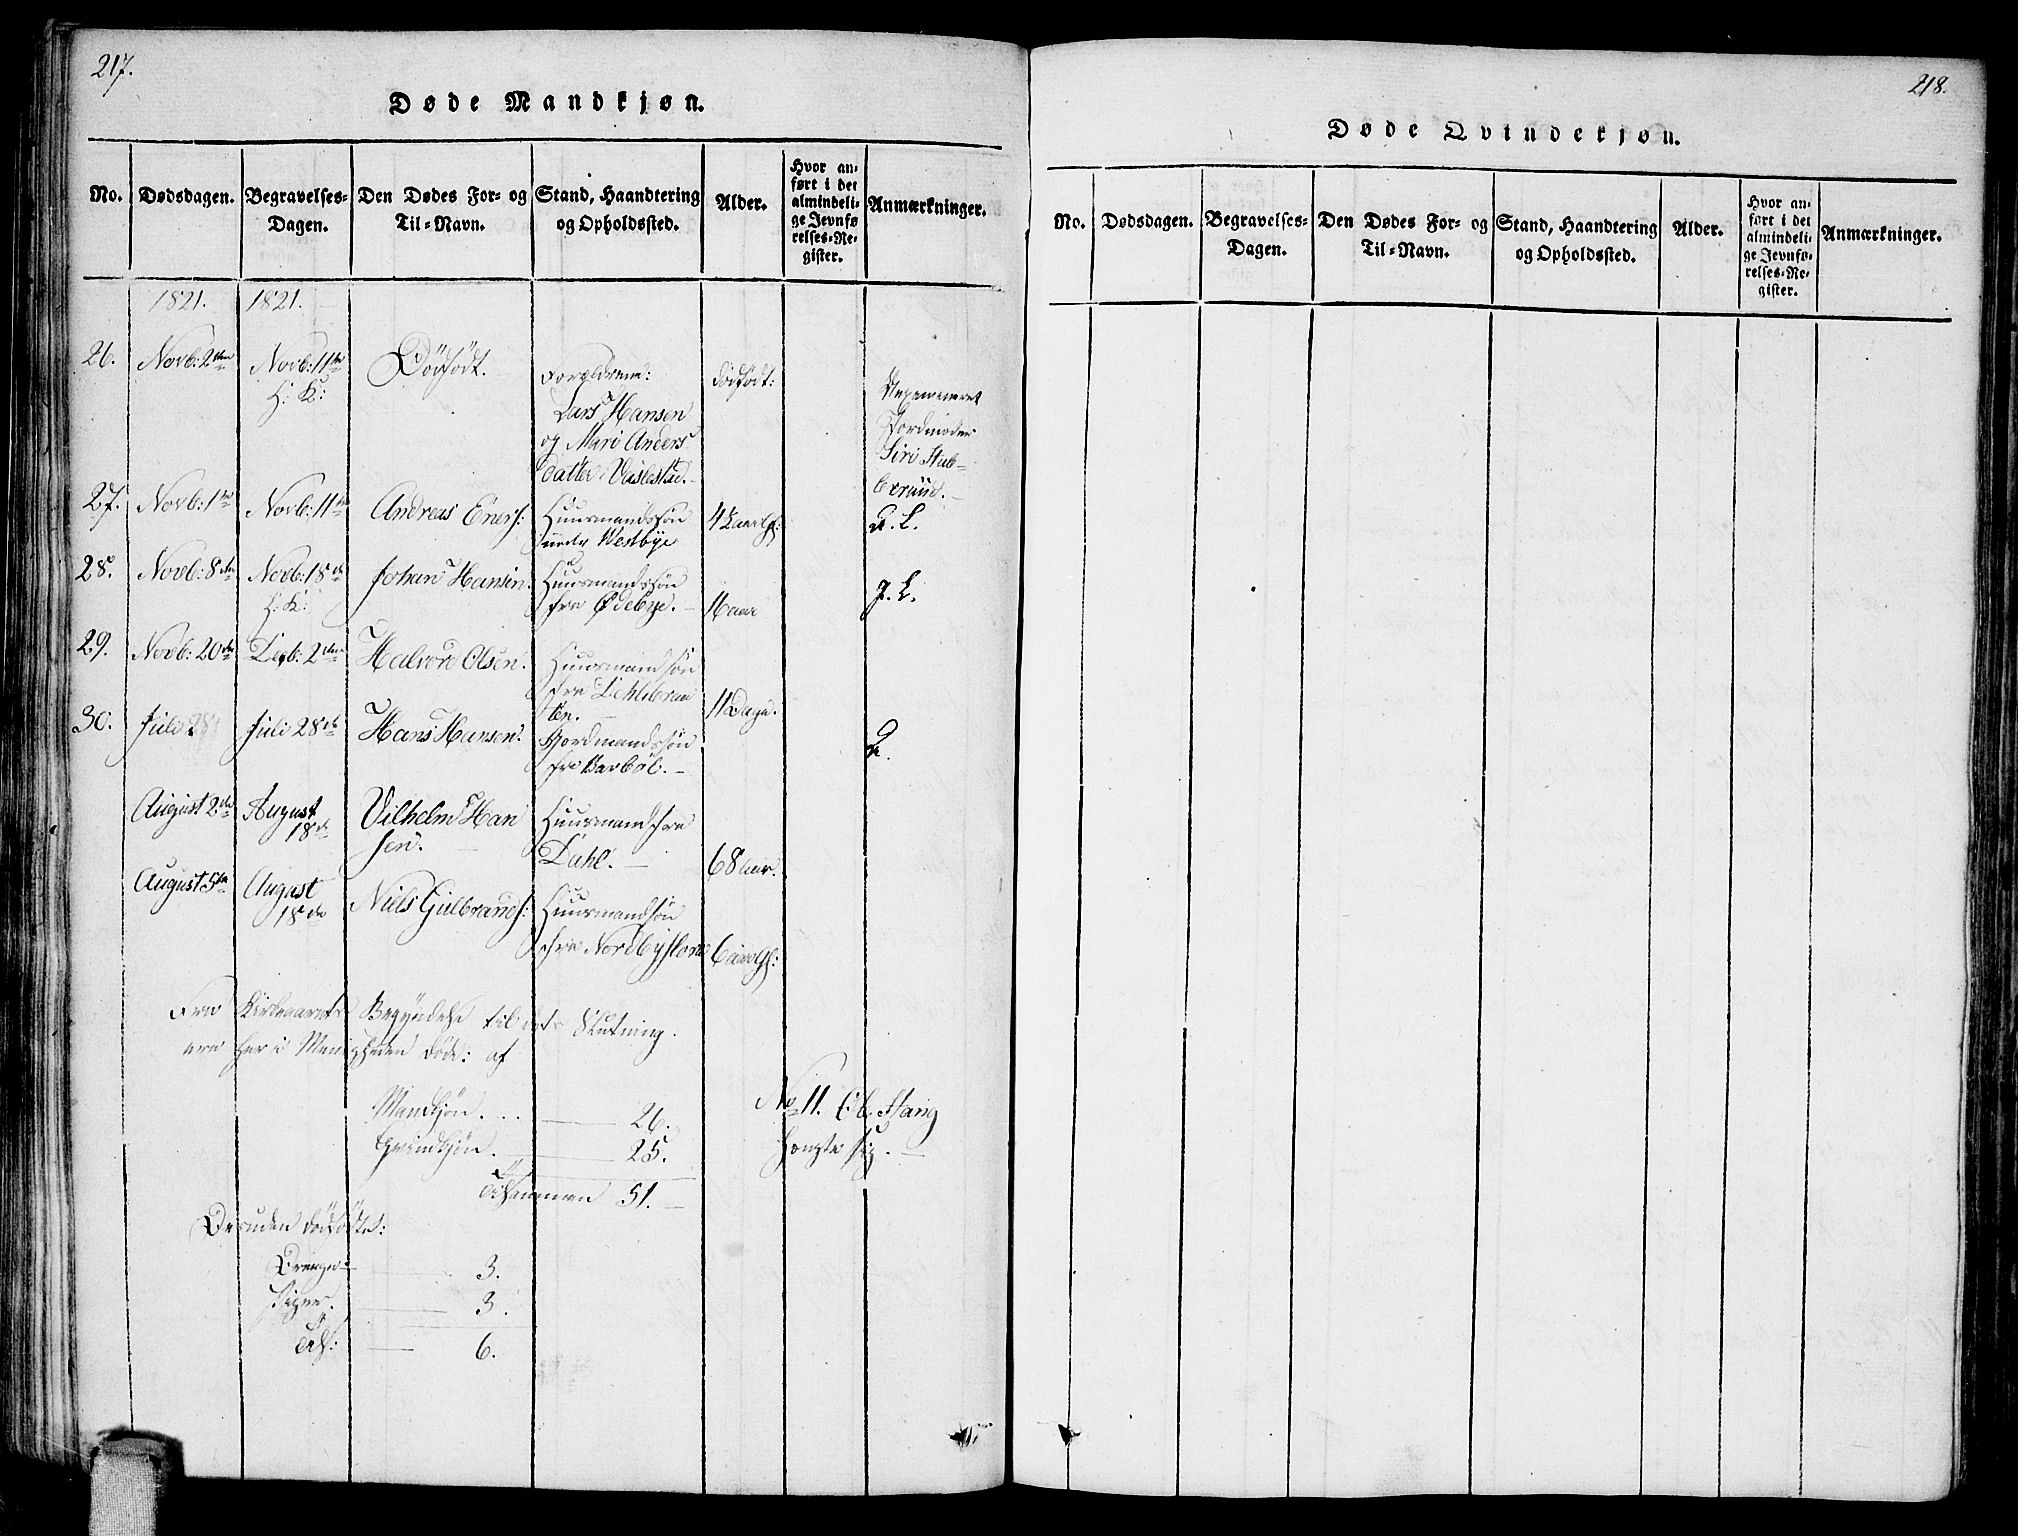 217.
Døde Mandkjøn.
No. Dødsdagen. Begravelses-Dagen. Den Dødes For- og Til-Navn. Stand, Haandtering og Opholdssted. Alder. Hvor anført i det almindelige Jevnførelses-Register. Anmærkninger.
1821. 1821.
26. Novb: 2den Novb: 11te H: K: Dödfödt. Forældrene:
Lars Hansen
og Mari Anders-
datter Vaslestad. dödfödt:
Jordmoder
Siri Stub-
berüud.
27. Novb: 1te Novb: 11te Andreas Eners: Huusmandssön
under Westbye 4 G. L.
28. Novb: 8de Novb: 18de H: K: Johan Hansen Huusmandssön
fra Ødebye. 11 aar J. L.
29. Novb: 20de Decb: 2den Halvord Olsen. Huusmandssön
fra 11 Dage.
30. Juli 28de Hans Hansen. Gordmandssön
fra Barböl.
August 2den August 18de Vilhelm Han
sen. Huusmand fra
Dahl. 68 aar.
August 5te August 18de Niels Gulbrands: Huusmandssön
fra Nordbyflore
Fra Kirkeaarets Begyndelse til dets Slutning
ere her i Menigheden döde: af
Mandkjön. 26.
Qvindkjön. 25.
Tilsammen 51.
Desuden dödfödte:
Drenge 3.
Piger. 3.
Tils: 6.
No 11. Ole Stang
hengte sig.
218.
Døde Qvindekjøn.
No. Dødsdagen. Begravelses-Dagen. Den Dødes For- og Til-Navn. Stand, Haandtering og Opholdssted. Alder. Hvor anført i det almindelige Jevnførelses-Register. Anmærkninger.